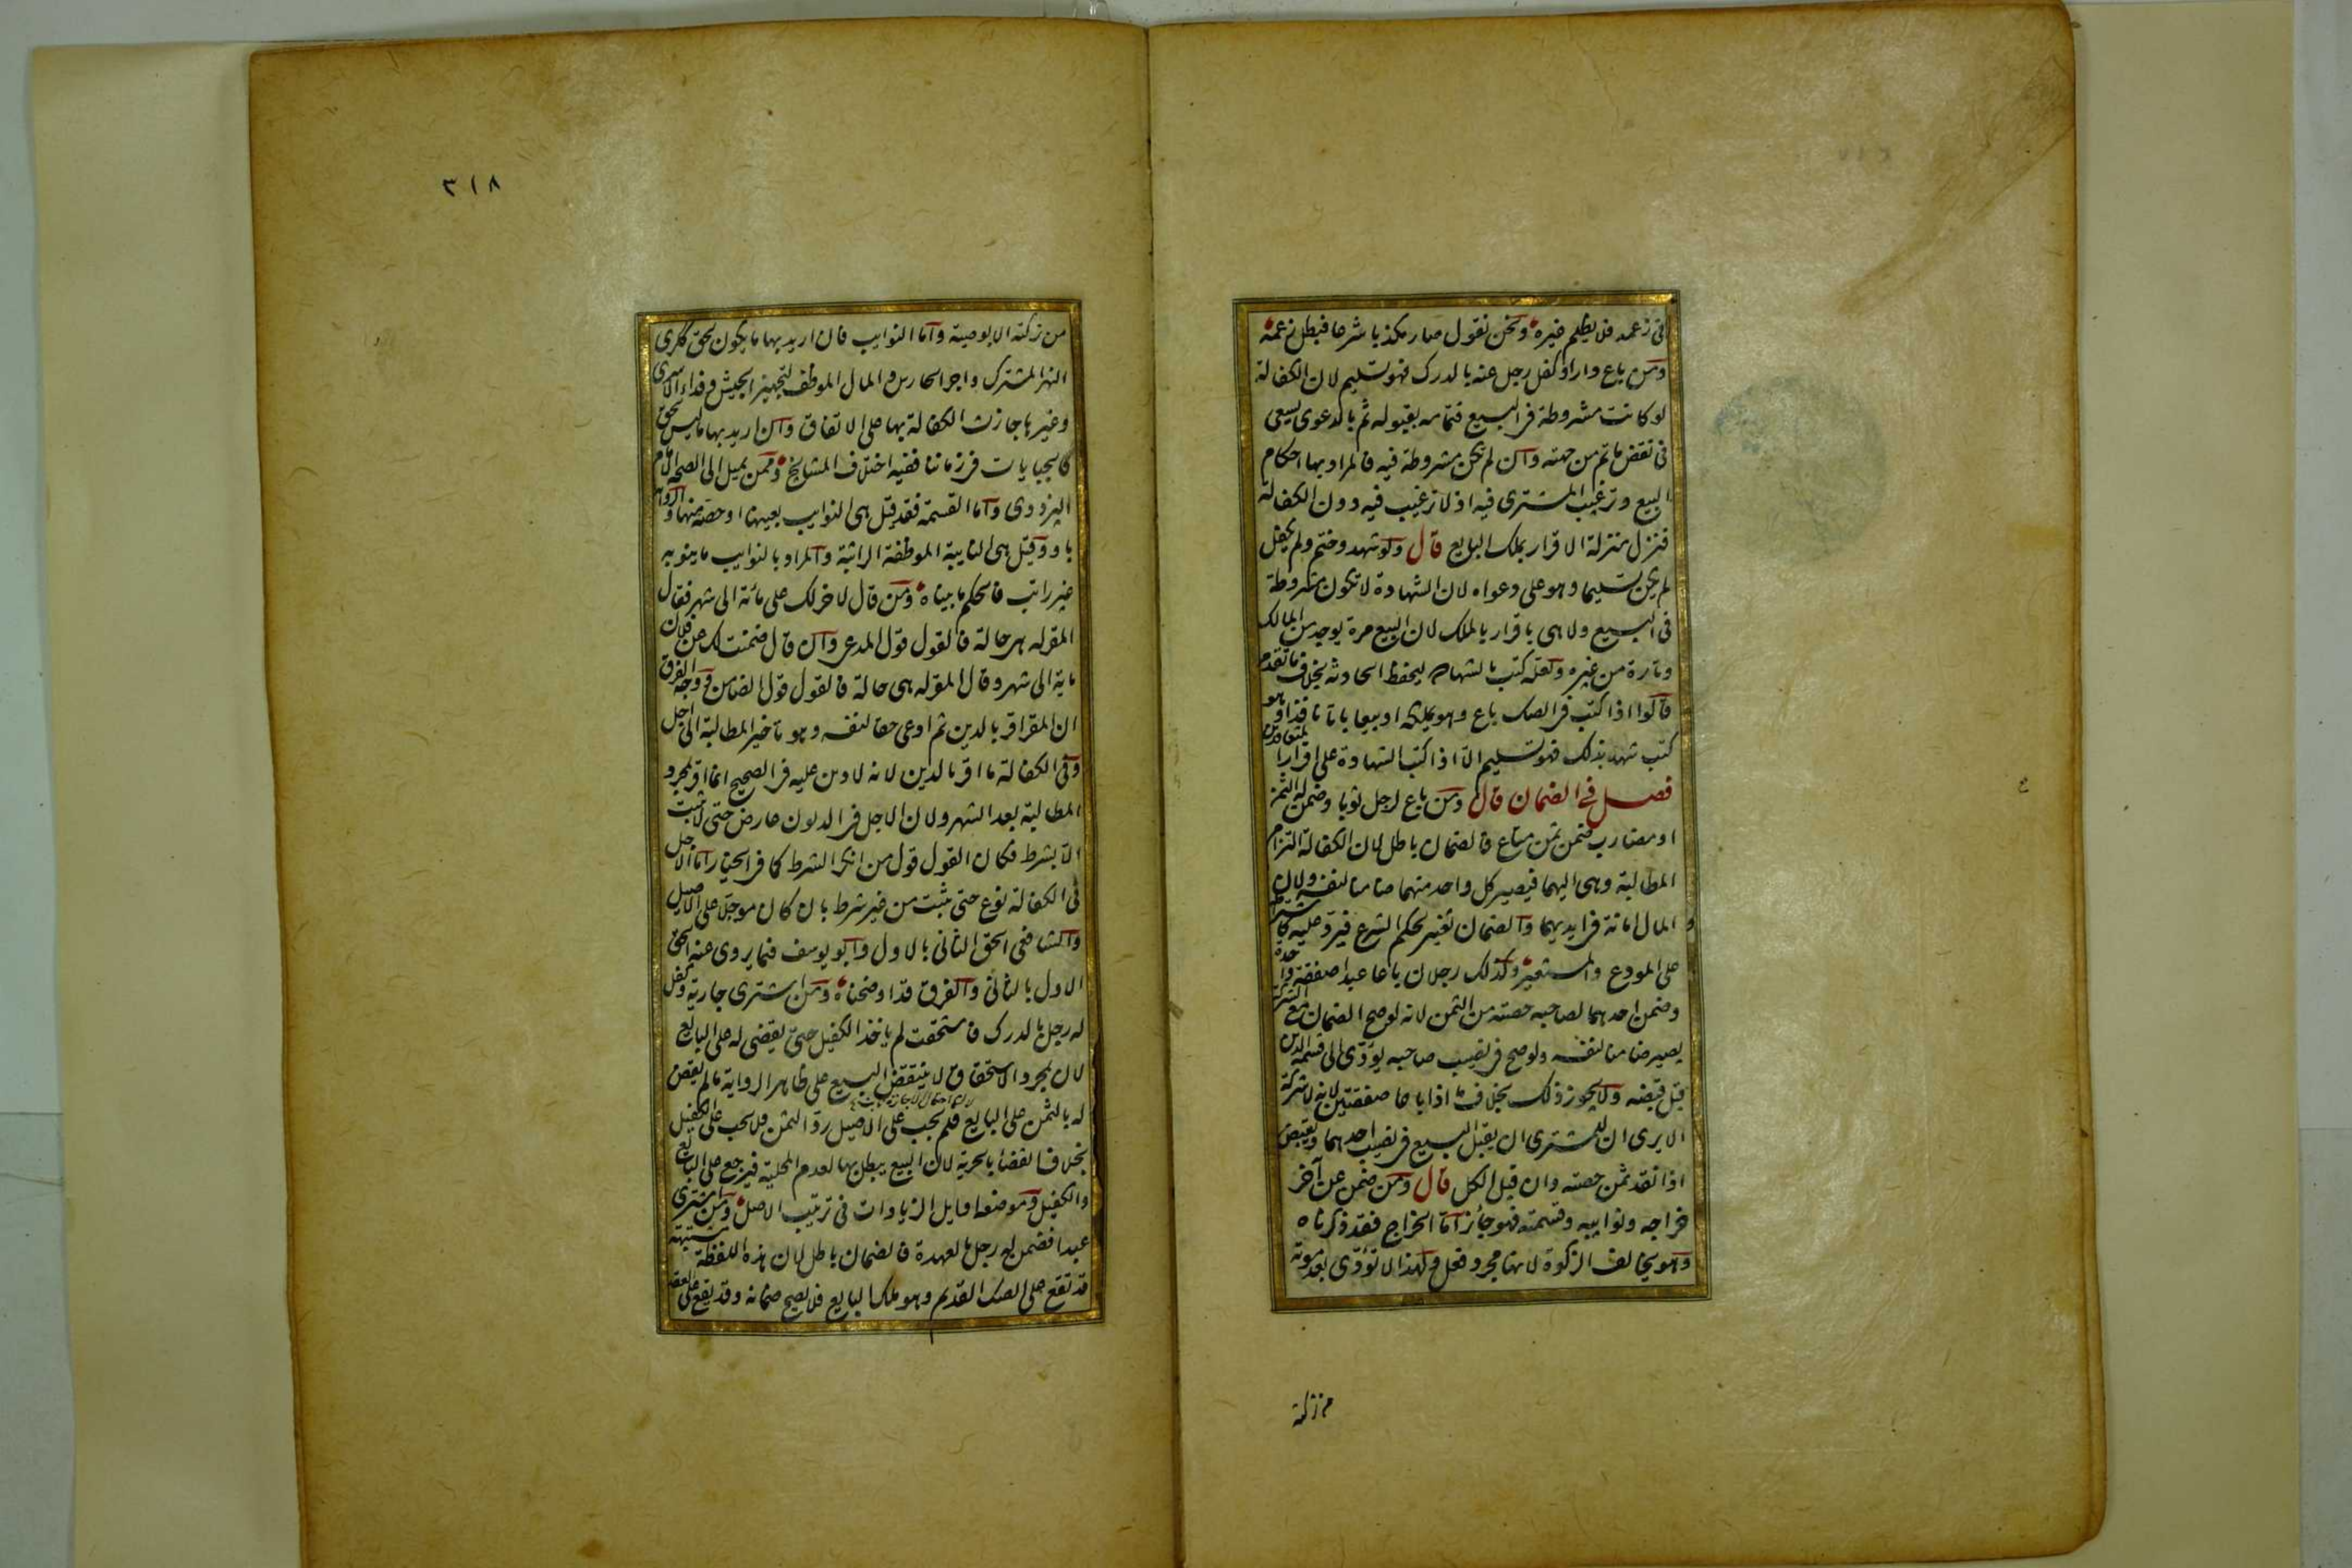 فى زعمه فلا يظلم غيره ونحن نقول صار مكذبا شرعا فبطل زعمه
ومن باع دارا وكفل رجل عنه بالدرك فهو تسليم لان الكفالة
لو كانت مشروطة فى البيع فتمامه بقبوله ثم بالدعوى يسعى
فى نقض ما تم من جهته وان لم تكن مشروطة فيه فالمراد بها احكام
البيع وترغيب المشترى فيه اذ لا ترغيب فيه دون الكفالة
فنزل منزلة الاقرار بملك البايع قال ولو شهد وختم ولم يكفل
لم يكن تسليما وهو على دعواه لان الشهادة لا تكون مشروطة
فى البيع ولا هى باقرار بالملك لان البيع مرة يوجد من المالك
وتارة من غيره ولعله كتب بالشهادة ليحفظ الحادثة بخلاف ما تقدم
قالوا اذا كتب فى الصك باع وهو يملكه او بيعا باتا نافذا وهو
كتب شهد بذلك فهو تسليم الا اذا كتب الشهادة على اقرار المتعاقدين
فصل فى الضمان قال ومن باع لرجل ثوبا وضمن له الثمن
او مضارب ضمن ثمن متاع فالضمان باطل لان الكفالة التزام
المطالبة وهى اليهما فيصير كل واحد منهما ضامنا لنفسه ولان
المال امانة فى ايديهما والضمان تغيير لحكم الشرع فيرد عليه كاشتراطه
على المودع والمستعير وكذلك رجلان باعا عبدا صفقة واحدة
وضمن احدهما لصاحبه حصته من الثمن لانه لو صح الضمان مع الشركة
يصير ضامنا لنفسه ولو صح فى نصيب صاحبه يؤدى الى قسمة الدين
قبل قبضه ولا يجوز ذلك بخلاف ما اذا باعا صفقتين لانه لا شركة
الا يرى ان للمشترى ان يقبل البيع فى نصيب احدهما ويقبض
اذا نقد ثمن حصته وان قبل الكل قال ومن ضمن عن آخر
خراجه ونوايبه وقسمته فهو جائز اما الخراج فقد ذكرناه
وهو يخالف الزكوة لانها مجرد فعل ولهذا لا تؤدى بعد موته
من تركته
٣١٨
من تركته الا بوصية واما النوايب فان اريد بها ما يكون بحق ككرى
النهر المشترك واجر الحارس والمال الموظف لتجهيز الجيش وفداء الاسرى
وغيرها جازت الكفالة بها على الاتفاق وان اريد بها ما ليس بحق
كالجبايات فى زماننا ففيه اختلاف المشايخ وممن يميل الى الصحة الامام
البزدوى واما القسمة فقد قيل هى النوايب بعينها او حصة منها والرواية
باو وقيل هى النايبة الموظفة الراتبة والمراد بالنوايب ما ينوبه
غير راتب فالحكم ما بيناه ومن قال لاخر لك على مائة الى شهر فقال
المقر له هى حالة فالقول قول المدعى وان قال ضمنت لك عن فلان
ماية الى شهر وقال المقر له هى حالة فالقول قول الضامن ووجه الفرق
ان المقر اقر بالدين ثم ادعى حقا لنفسه وهو تاخير المطالبة الى اجل
وفى الكفالة ما اقر بالدين لانه لا دين عليه فى الصحيح انما اقر بمجرد
المطالبة بعد الشهر ولان الاجل فى الديون عارض حتى لا يثبت
الا بشرط فكان القول قول من انكر الشرط كما فى الخيار اما الاجل
فى الكفالة نوع حتى يثبت من غير شرط بان كان موجلا على الاصيل
والشافعى الحق الثانى بالاول وابو يوسف فيما يروى عنه الحق
الاول بالثانى والفرق قد اوضحناه ومن اشترى جارية وكفل
له رجل بالدرك فاستحقت لم ياخذ الكفيل حتى يقضى له على البايع
لان بمجرد الاستحقاق لا ينتقض البيع على ظاهر الرواية ما لم يقض
له بالثمن على البايع فلم يجب على الاصيل رد الثمن فلا يجب على الكفيل
بخلاف القضاء بالحرية لان البيع يبطل بها لعدم المحلية فيرجع على البايع
والكفيل وموضعه اوايل الزيادات فى ترتيب الاصل ومن اشترى
عبدا فضمن له رجل بالعهدة فالضمان باطل لان هذه اللفظة مشتبهة
قد تقع على الصك القديم وهو ملك البايع فلا يصح ضمانه وقد يقع على العقد